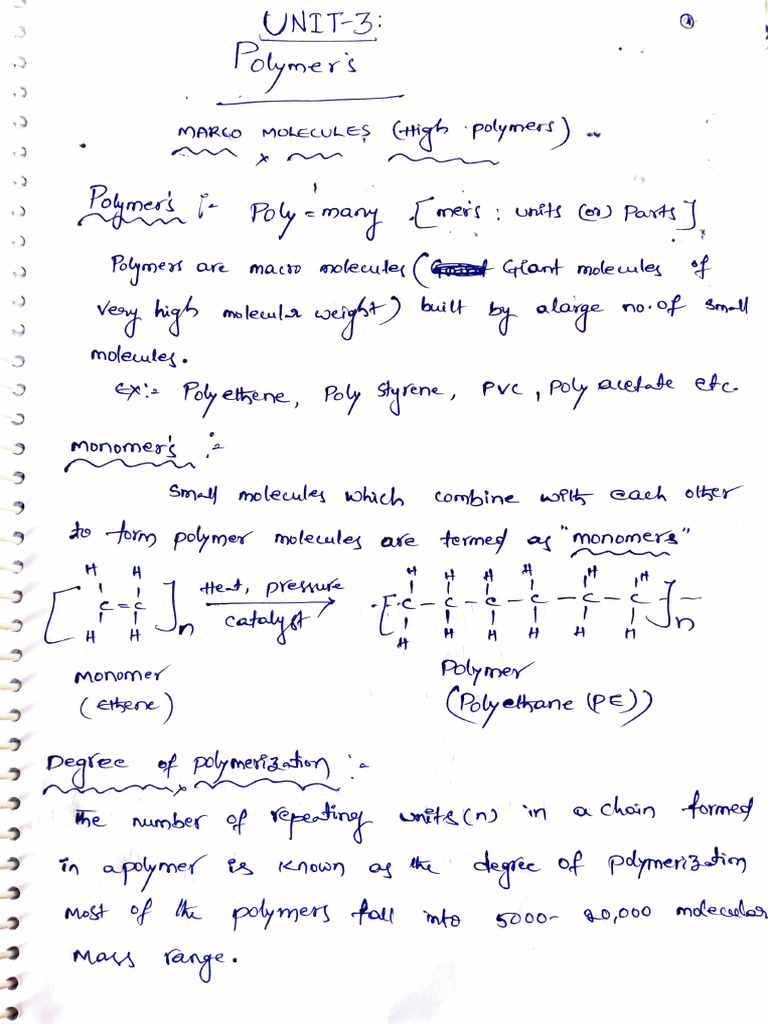 UNIT-3:
1
Polymer's
MARCO MOLECULES (High polymers)
Polymer's :- Poly = many [mers : units (or) Parts]
Polymers are macro molecules ( Giant molecules of
very high molecular weight) built by a large no. of small
molecules.
ex:- Polyethene, Poly styrene, PVC, Poly acetate etc.
Monomer's :-
Small molecules which combine with each other
to form polymer molecules are termed as "monomers"
H H H H H H H H
[ C = C ]n Heat, pressure [ C - C - C - C - C - C ]n
catalyst
H H H H H H H H
Monomer Polymer
(Ethene) (Polyethane (PE))
Degree of polymerization :-
The number of repeating units (n) in a chain formed
in a polymer is known as the degree of polymerization
Most of the polymers fall into 5000- 20,000 molecular
Mass range.